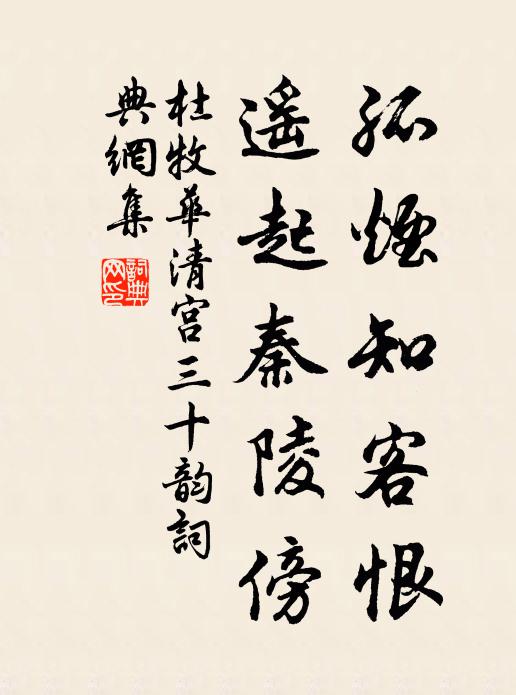 孤煙知客恨
遥起秦陵傍
杜牧華清宮三十韵詞
典網集
詞典
网印